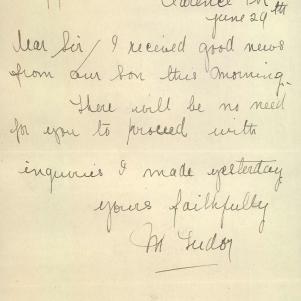 Clarence
June 29th
Dear Sir / I received good news
from our son this morning.
There will be no need
for you to proceed with
inquiries I made yesterday
yours faithfully
M Tudor